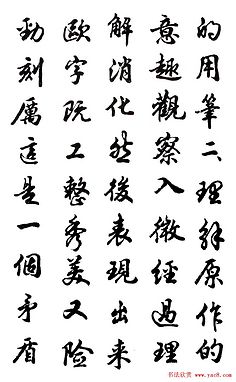 的用筆二理解原作的
意趣觀察入微經過理
解消化然後表現出来
歐字既工整秀美又险
勁刻厲這是一個矛盾
书法欣赏 www.yac8.com